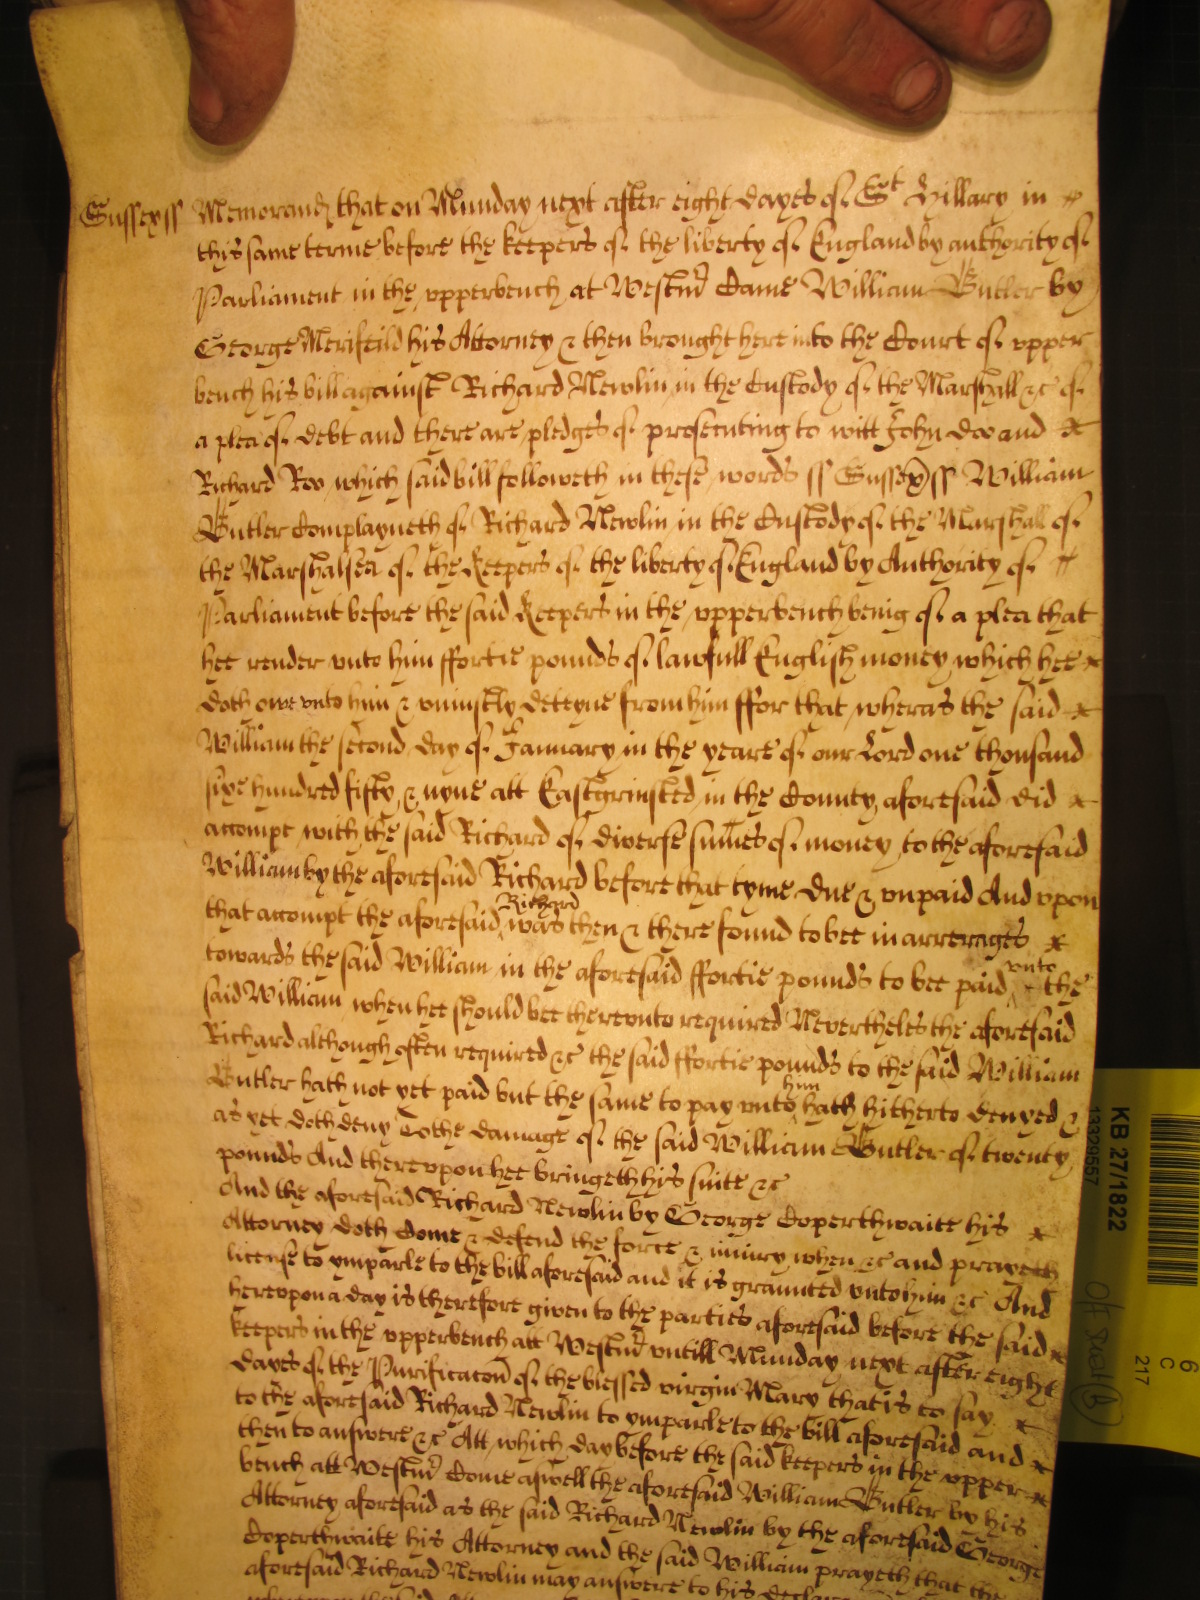 Sussex ss Memorand that on Munday next after eight dayes of St Hillary in
this same terme before the keepers of the liberty of England by authority of
Parliament in the vpperbench at Westmr Came William Butler by
George Merifeild his Attorney & then brought here into the Court of vpper
bench his bill against Richard Newlin in the Custody of the Marshall &c of
a plea of debt and there are pledges of prosecuting to witt John Doo and
Richard Roo which said bill followeth in these words ss Sussex ss William
Butler Complayneth of Richard Newlin in the Custody of the Marshall of
the Marshalsea of the Keepers of the liberty of England by Authority of
Parliament before the said Keepers in the vpperbench being of a plea that
hee render vnto him ffortie pounds of lawfull English money which hee
doth owe vnto him & vniustly deteyne from him ffor that wheras the said
William the second day of January in the yeare of our Lord one thousand
sixe hundred fifty & nyne att Eastgrinsted in the County aforesaid did
accompt with the said Richard of diverse sumes of money to the aforesaid
William by the aforesaid Richard before that tyme due & vnpaid And vpon
that accompt the aforesaid Richard was then & there found to bee in arrerages
towards the said William in the aforesaid ffortie pounds to bee paid vnto the
said William when hee should bee therevnto required Neverthelès the aforesaid
Richard although often required &c the said ffortie pounds to the said William
Butler hath not yet paid but the same to pay vnto him hath hitherto denyed &
as yet doth deny To the damage of the said William Butler of twenty
pounds And therevpon hee bringeth his suite &c
And the aforesaid Richard Newlin by George Coperthwaite his
Attorney doth Come & defend the force & iniury when &c and prayeth
license to ymparle to the bill aforesaid and it is graunted vnto him &c And
herevpon a day is therefore given to the parties aforesaid before the said
keepers in the vpperbench att Westmr vntill Munday next after eight
dayes of the Purificacon of the blessed virgin Mary that is to say
to the aforesaid Richard Newlin to ymparle to the bill aforesaid and
then to answere &c Att which day before the said keepers in the vpper
bench att Westmr Come aswell the aforesaid William Butler by his
Attorney aforesaid as the said Richard Newlin by the aforesaid George
Coperthwaite his Attorney and the said William prayeth that the
aforesaid Richard Newlin may answere to his
KB 27/1822
13329557
6
C
217